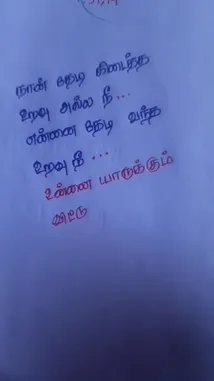 நான் தேடி கிடைத்த
உறவு அல்ல நீ...
என்னை தேடி வந்த
உறவு நீ...
உன்னை யாருக்கும்
விட்டு